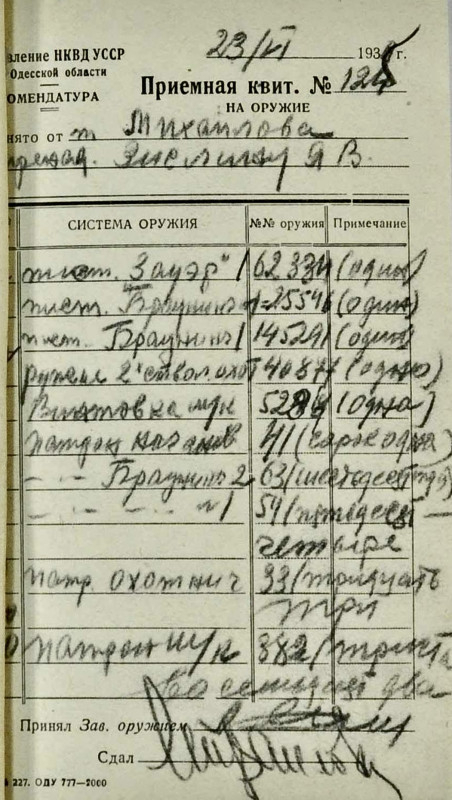 вление НКВД УССР
Одесской области
ОМЕНДАТУРА
23/VI 193 г.
Приемная квит. № 124
НА ОРУЖИЕ
нято от т. Михайлова
Я В.
СИСТЕМА ОРУЖИЯ №№ оружия Примечание
пист. Зауэр" 1 62334 (один)
пист. Браунинг 25546 (один)
пист. Браунинг 1 14529 (один)
ружье 2х ствол. охот 40877 (одно)
Винтовка м/к (одна)
патрон наганов 41 (сорок один)
- - Браунинг 2 63 (шестьдесят три)
- - - - №1 54 (пятьдесят
четыре
патр. охотнич 33 (тридцать
три
патрон м/к 382 (триста
восемьдесят два
Принял Зав. оружием
Сдал
227. ОДУ 777—2000